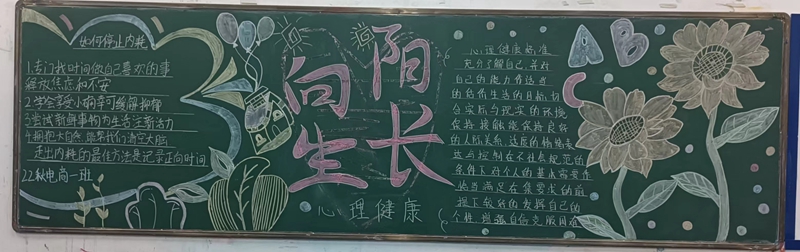 如何停止内耗
1.专门找时间做自己喜欢的事
释放焦虑和不安
2.学会享受小确幸可缓解抑郁
3.尝试新鲜事物为生活注新活力
4.拥抱大自然 能帮我们清空大脑
走出内耗的最佳方法是记录正向时间
22秋电商一班
向阳
生长
心理健康
心理健康标准
充分了解自己,并对
自己的能力作适当
的估价生活的目标切
合实际与现实的环境
保持接触能保持良好
的人际关系 适度的情绪表
达与控制在不社会规范的
条件下对个人的基本需要作
恰当满足在集要求的前
提下较好的发挥自己的
个性 增强自信克服困难
A B C